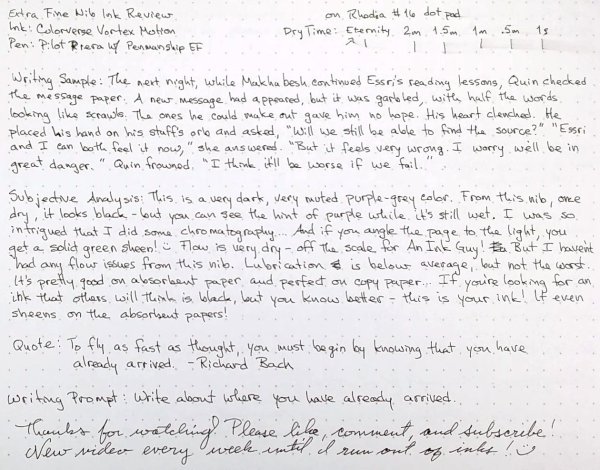 Extra Fine Nib Ink Review on Rhodia #16 dot pad
Ink: Colorverse Vortex Motion Dry Time: Eternity 2m 1.5m 1m .5m 1s
Pen: Pilot Prera w/ Penmanship EF
Writing Sample: The next night, while Makhabesh continued Essri's reading lessons, Quin checked
the message paper. A new message had appeared, but it was garbled, with half the words
looking like scrawls. The ones he could make out gave him no hope. His heart clenched. He
placed his hand on his staff's orb and asked, "Will we still be able to find the source?" "Essri
and I can both feel it now," she answered. "But it feels very wrong. I worry we'll be in
great danger." Quin frowned. "I think it'll be worse if we fail."
Subjective Analysis: This is a very dark, very muted purple-grey color. From this nib, once
dry, it looks black - but you can see the hint of purple while it's still wet. I was so
intrigued that I did some chromatography... And if you angle the page to the light, you
get a solid green sheen! Flow is very dry - off the scale for An Ink Guy! But I haven't
had any flow issues from this nib. Lubrication is below average, but not the worst.
It's pretty good on absorbent paper and perfect on copy paper... If you're looking for an
ink that others will think is black, but you know better - this is your ink! It even
sheens on the absorbent papers!
Quote: To fly as fast as thought, you must begin by knowing that you have
already arrived. - Richard Bach
Writing Prompt: Write about where you have already arrived.
Thanks for watching! Please like, comment, and subscribe!
New video every week until I run out of inks!